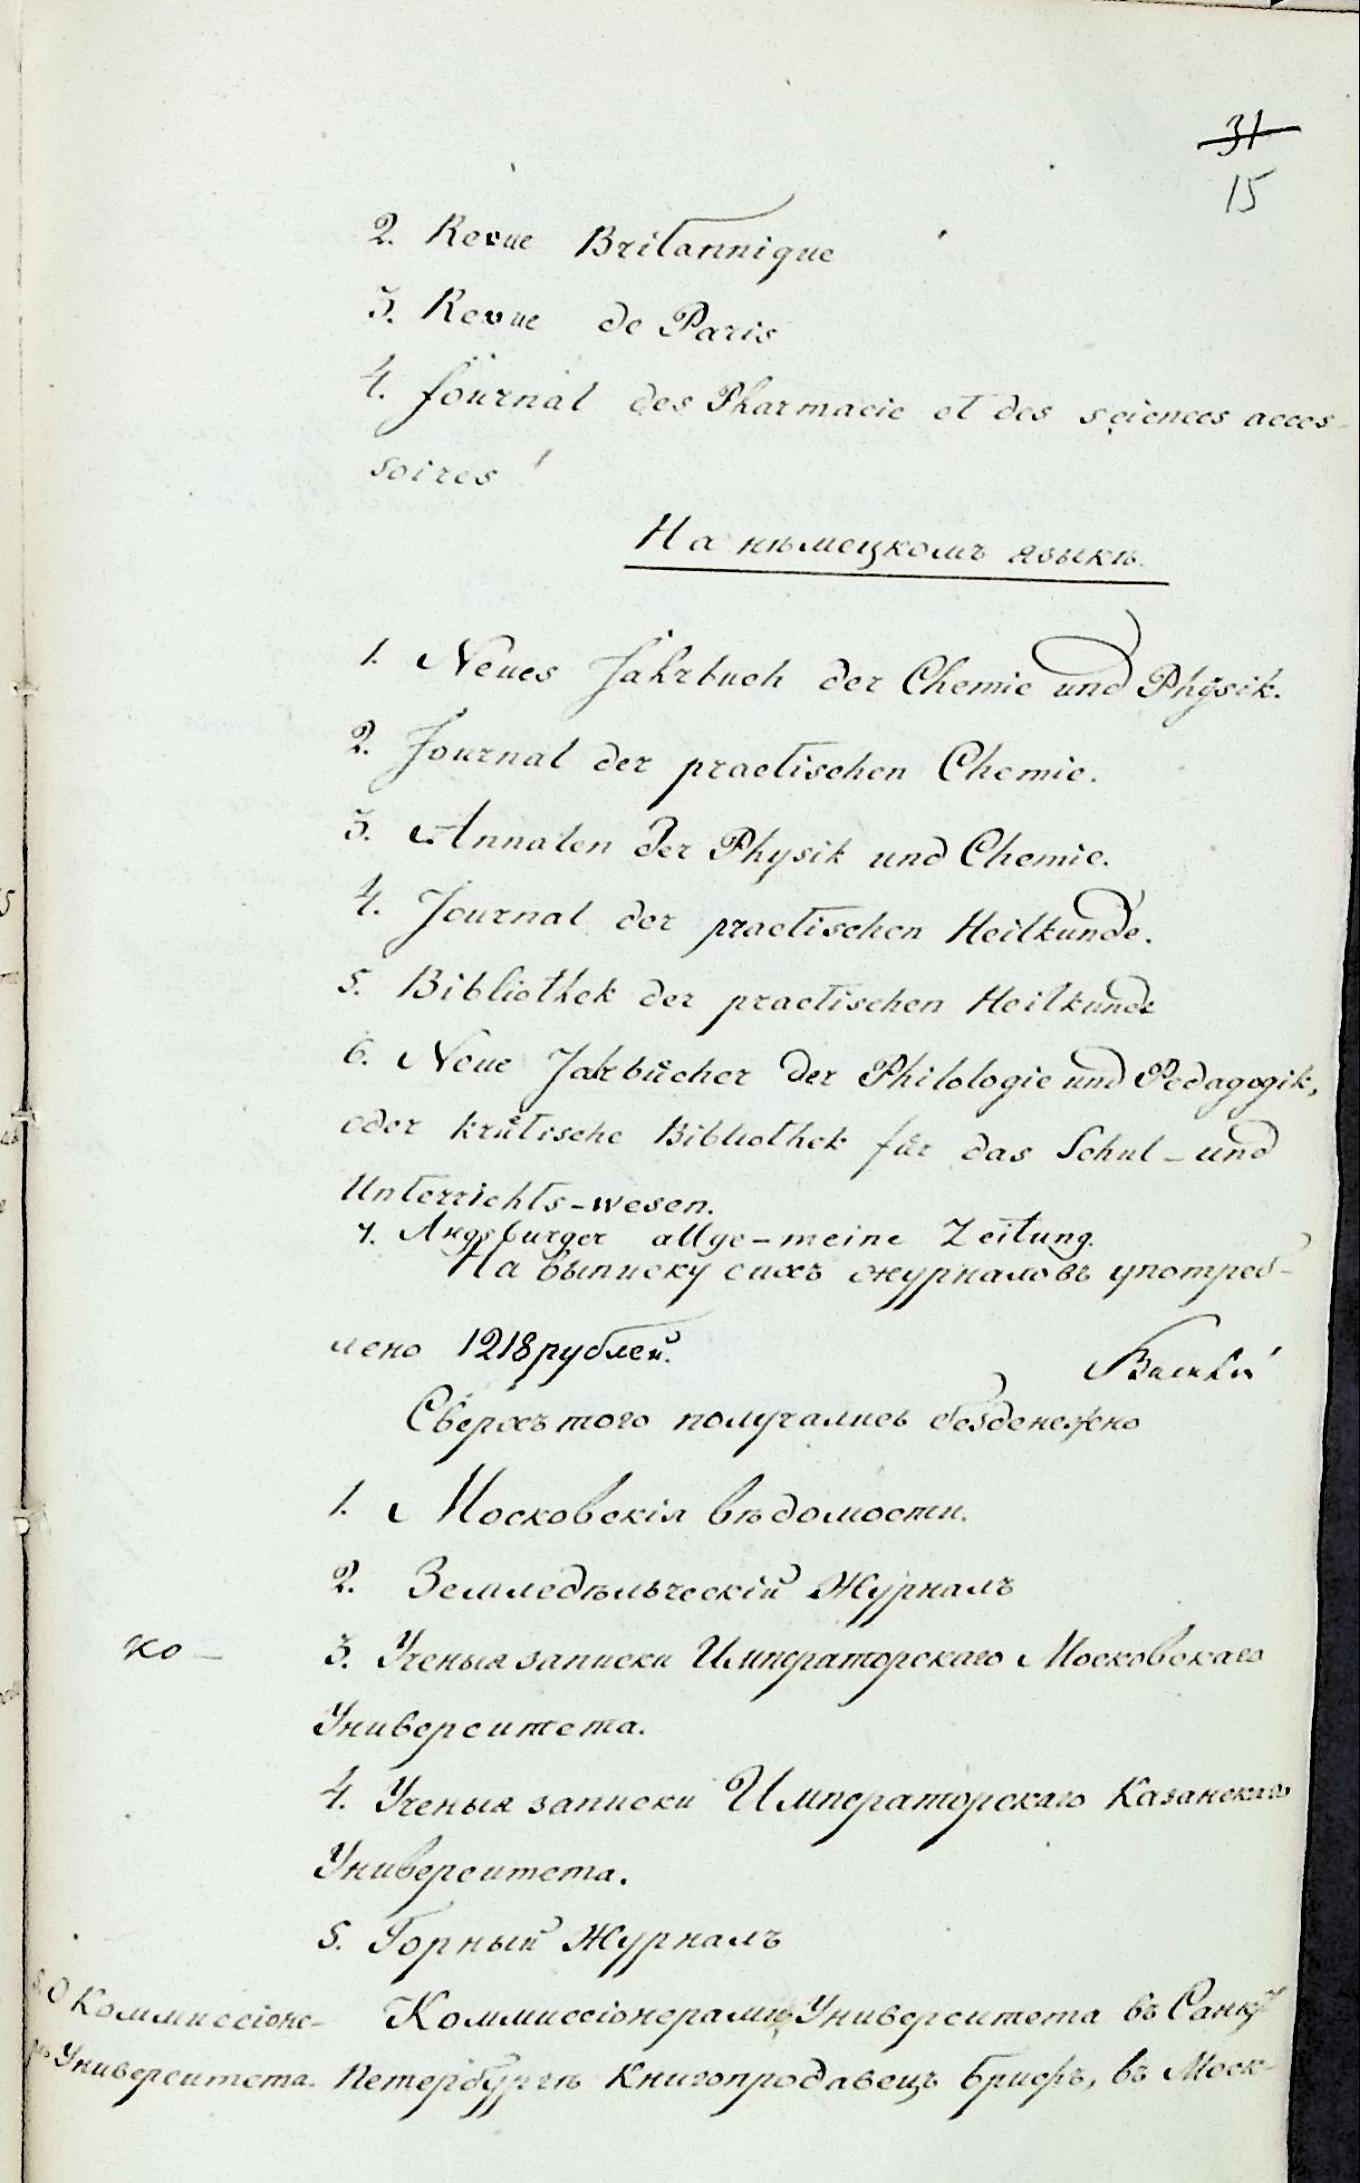 31
15
2. Revue Britannique
3. Revue de Paris
4. Journal des Pharmacie et des sciences acces-
soires
На нѣмецкомъ языкѣ.
1. Neues Jahrbuch der Chemie und Physik.
2. Journal der practischen Chemie.
3. Annalen der Physik und Chemie.
4. Journal der practischen Heilkunde.
5. Bibliothek der practischen Heilkunde
6. Neue Jahrbücher der Philologie und Pedagogik,
oder kritische Bibliothek für das Schul-und
Unterrichts-wesen.
7. Augsburger allge-meine Zeitung.
На выписку сихъ журналовъ употреб-
лено 1218 рублей.
Сверхъ того получались безденежно
1. Московскія вѣдомости.
2. Земледѣльческій Журналъ
ко- 3. Ученыя записки Императорскаго Московскаго
Университета.
4. Ученыя записки Императорскаго Казанскаго
Университета.
5. Горный Журналъ
О Коммиссіоне- Коммиссіонерами Университета въ Санкт
Университета. Петербургѣ Книгопродавецъ Брифъ, въ Моск-